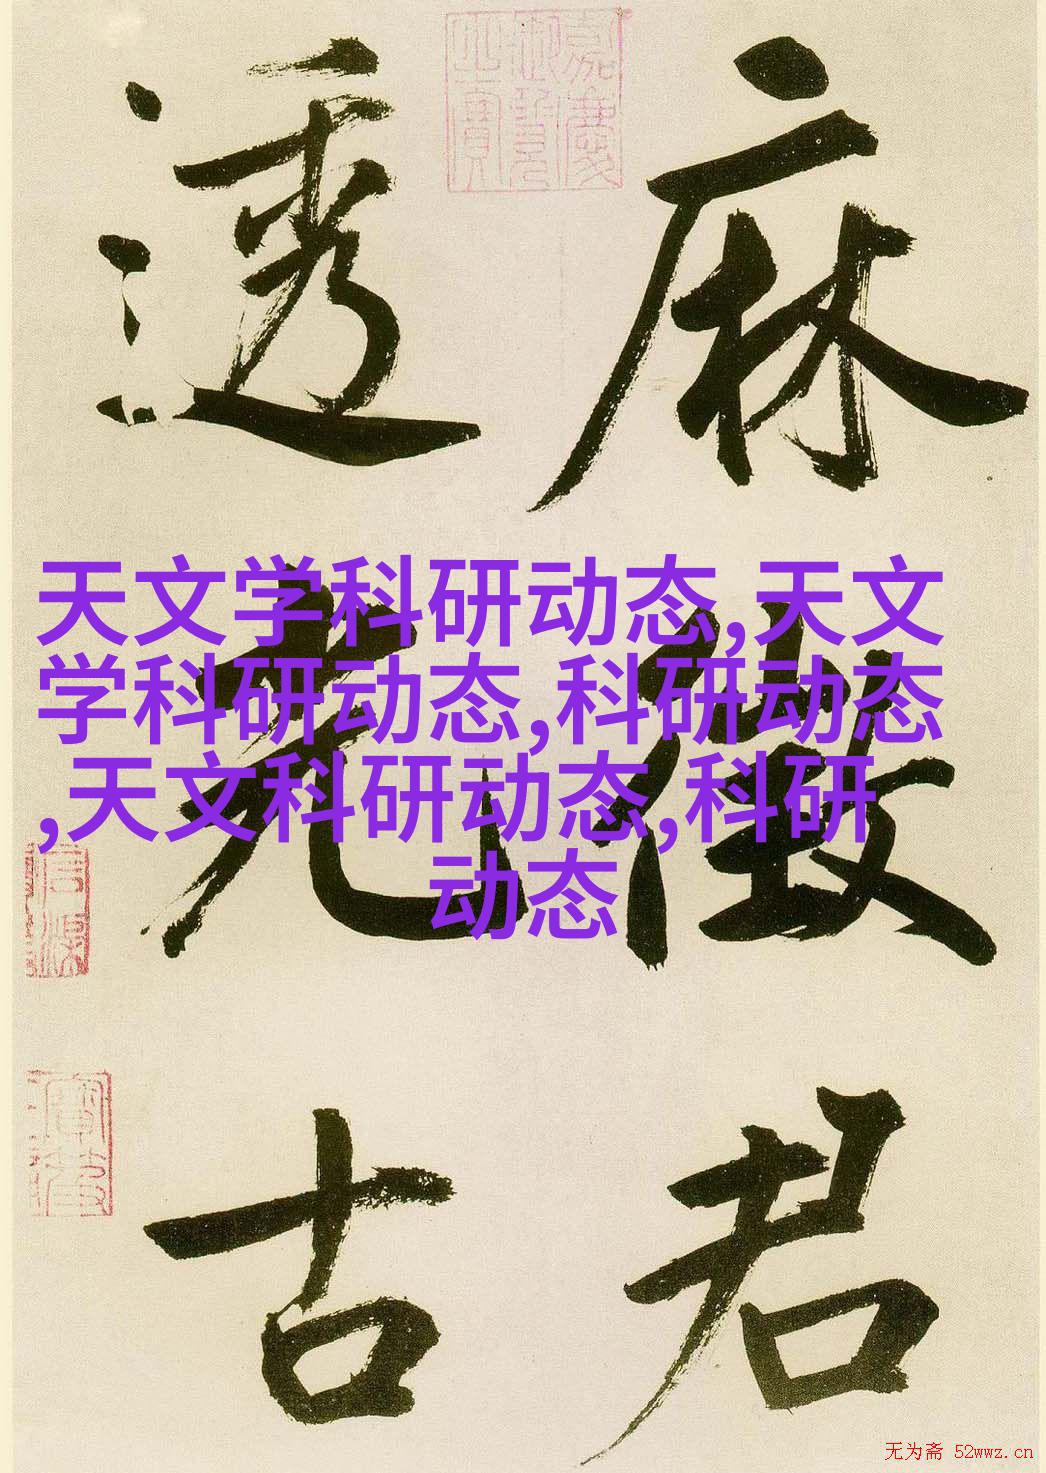 嘉慶
御覽
之寶
麻徵君
透光古
天文学科研动态,天文
学科研动态,科研动态
,天文科研动态,科研
动态
无为斋 52wwz.cn